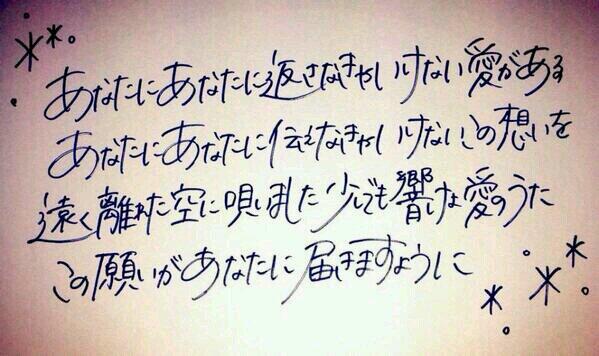 あなたにあなたに返さなきゃいけない愛がある
あなたにあなたに伝えなきゃいけないこの想いを
遠く離れた空に唄いました少しでも響けな愛のうた
この願いがあなたに届きますように